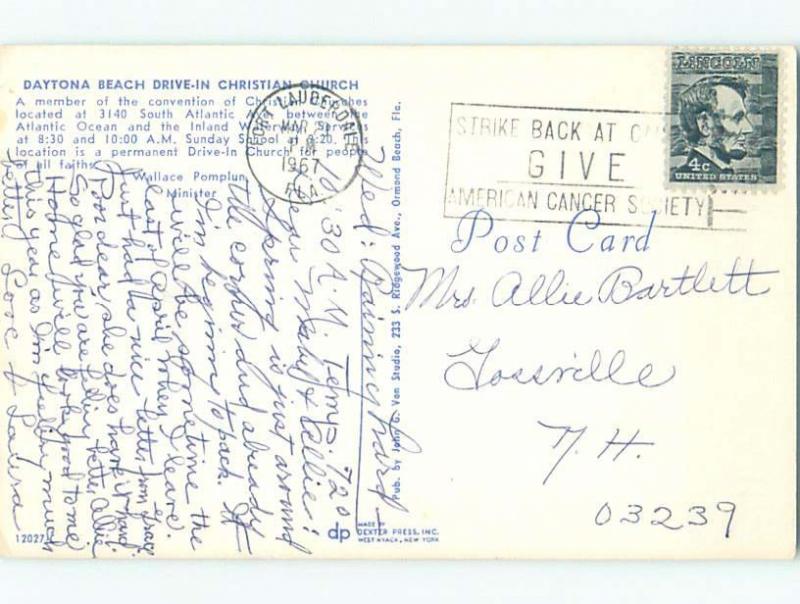 DAYTONA BEACH DRIVE-IN CHRISTIAN CHURCH
A member of the convention of Christian Churches
located at 3140 South Atlantic Ave. between the
Atlantic Ocean and the Inland Waterway. Services
at 8:30 and 10:00 A.M. Sunday School at 9:20. This
location is a permanent Drive-In Church for people
of all faiths.
Wallace Pomplun,
Minister
FORT LAUDERDALE
MAR
PM
1967
FLA
STRIKE BACK AT
GIVE
AMERICAN CANCER SOCIETY
LINCOLN
4c
UNITED STATES
Post Card
Mrs. Allie Bartlett
Gossville
N.H.
03239
Wed: Raining hard -
10:30 A.M. Temp. 72°
Dear Mary & Allie:
Spring is just around
the corner and already
I'm begining to pack. It
will be sometime the
last of April when I leave.
Just had a nice letter from
Poor dear she does have it hard.
So glad you are feelin better Allie
Home will look good to me
this year as I'm feeling much
better. Love Laura
Pub. by John G. Von Studio, 233 S. Ridgewood Ave., Ormond Beach, Fla.
12027
dp
MADE BY
DEXTER PRESS, INC.
WEST NYACK, NEW YORK